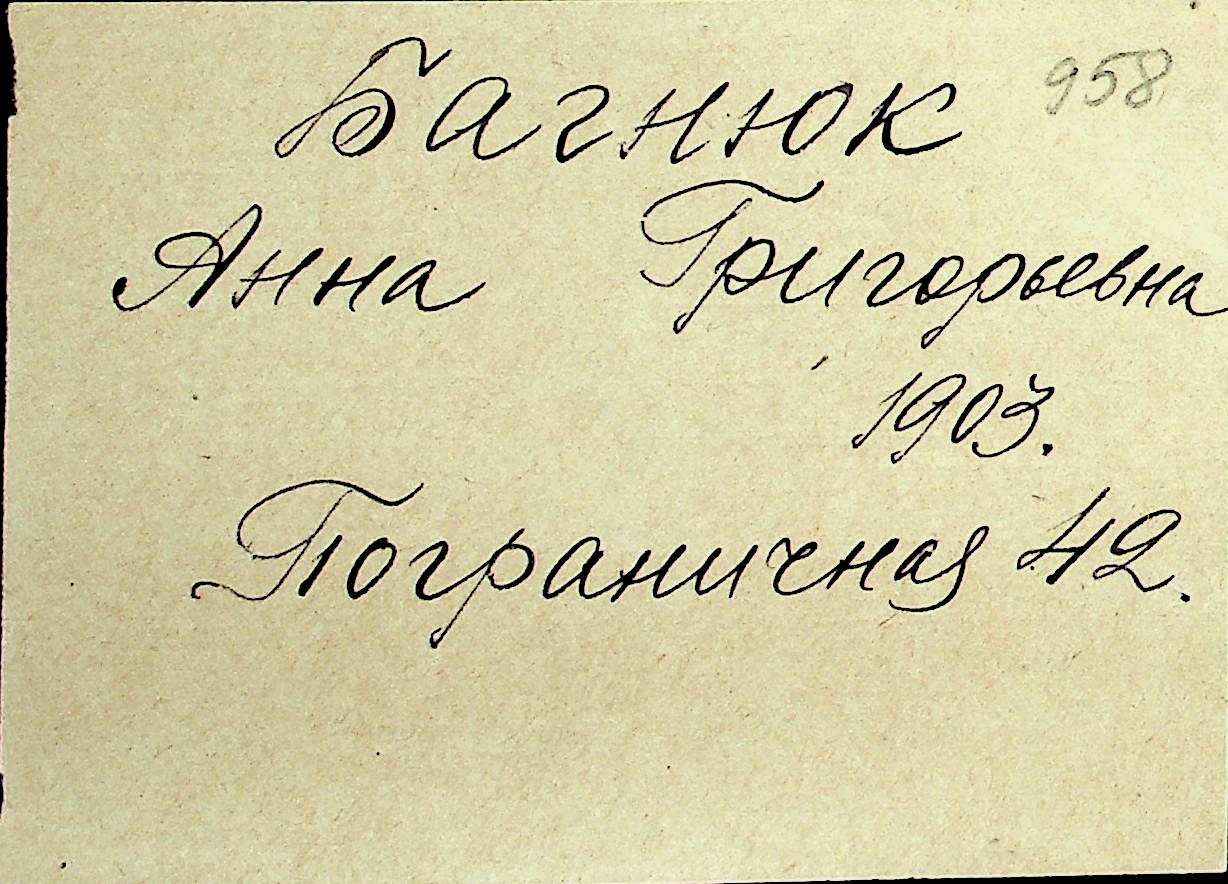 Багнюк 958
Анна Григорьевна
1903.
Пограничная 42.